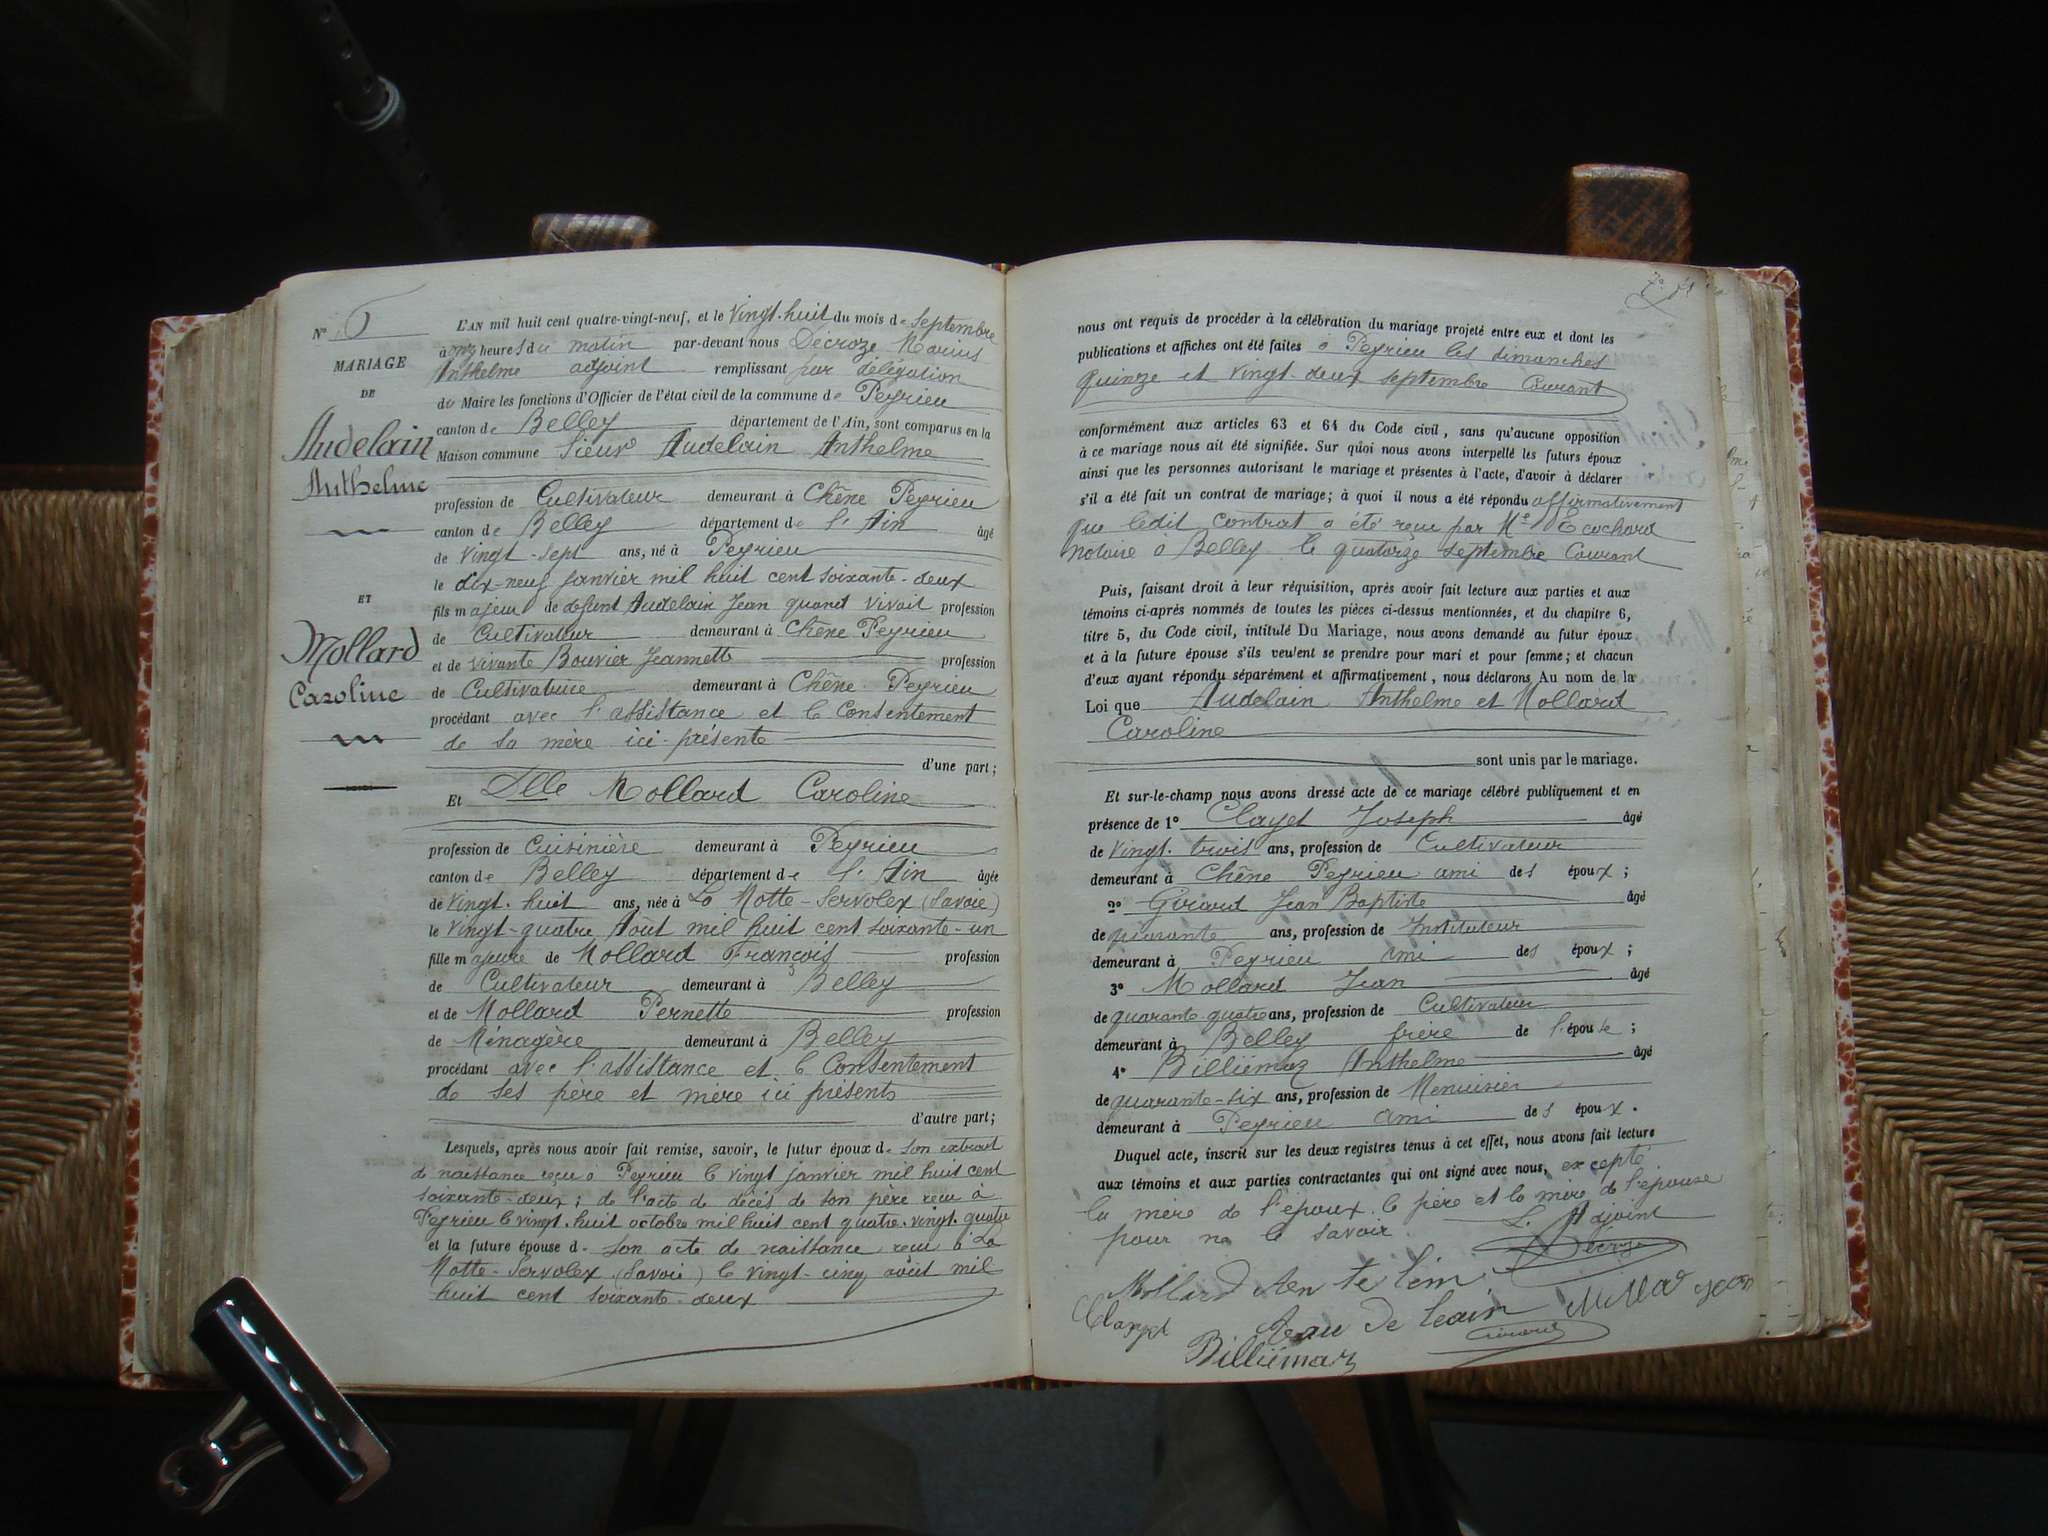 N° 6
MARIAGE
DE
Audelain
Anthelme
ET
Mollard
Caroline
L'AN mil huit cent quatre-vingt-neuf, et le vingt-huit du mois de septembre
à onz heures du matin par-devant nous Décroze Marius
Anthelme adjoint remplissant par délégation
du Maire les fonctions d'Officier de l'état civil de la commune de Peyrieu
canton de Belley département de l'Ain, sont comparus en la
Maison commune Sieur Audelain Anthelme
profession de Cultivateur demeurant à Chêne Peyrieu
canton de Belley département de l'Ain âgé
de vingt-sept ans, né à Peyrieu
le dix-neuf janvier mil huit cent soixante-deux
fils majeur de défunt Audelain Jean quand vivait profession
de Cultivateur demeurant à Chêne Peyrieu
et de vivante Bouvier Jeannette profession
de Cultivatrice demeurant à Chêne Peyrieu
procédant avec l'assistance et le Consentement
de sa mère ici présente
d'une part;
Et Delle Mollard Caroline
profession de Cuisinière demeurant à Peyrieu
canton de Belley département de l'Ain âgée
de vingt-huit ans, née à La Motte-Servolex (Savoie)
le vingt-quatre Août mil huit cent soixante-un
fille majeure de Mollard François profession
de Cultivateur demeurant à Belley
et de Mollard Pernette profession
de Ménagère demeurant à Belley
procédant avec l'assistance et le Consentement
de ses père et mère ici présents
d'autre part;
Lesquels, après nous avoir fait remise, savoir, le futur époux de son extrait
de naissance reçu à Peyrieu le vingt janvier mil huit cent
soixante-deux; de l'acte de décès de son père reçu à
Peyrieu le vingt-huit octobre mil huit cent quatre-vingt-quatre
et la future épouse d. son acte de naissance reçu à La
Motte-Servolex (Savoie) le vingt-cinq août mil
huit cent soixante-deux
nous ont requis de procéder à la célébration du mariage projeté entre eux et dont les
publications et affiches ont été faites à Peyrieu les dimanches
quinze et vingt-deux septembre Courant
conformément aux articles 63 et 64 du Code civil, sans qu'aucune opposition
à ce mariage nous ait été signifiée. Sur quoi nous avons interpellé les futurs époux
ainsi que les personnes autorisant le mariage et présentes à l'acte, d'avoir à déclarer
s'il a été fait un contrat de mariage; à quoi il nous a été répondu affirmativement
que ledit contrat a été reçu par Me Ecochard
notaire à Belley le quatorze septembre Courant
Puis, faisant droit à leur réquisition, après avoir fait lecture aux parties et aux
témoins ci-après nommés de toutes les pièces ci-dessus mentionnées, et du chapitre 6,
titre 5, du Code civil, intitulé Du Mariage, nous avons demandé au futur époux
et à la future épouse s'ils veulent se prendre pour mari et pour femme; et chacun
d'eux ayant répondu séparément et affirmativement, nous déclarons Au nom de la
Loi que Audelain Anthelme et Mollard
Caroline
sont unis par le mariage.
Et sur-le-champ nous avons dressé acte de ce mariage célébré publiquement et en
présence de 1° Clayet Joseph âgé
de vingt-trois ans, profession de Cultivateur
demeurant à Chêne Peyrieu ami des époux;
2° Girard Jean Baptiste âgé
de quarante ans, profession de Instituteur
demeurant à Peyrieu ami des époux;
3° Mollard Jean âgé
de quarante-quatre ans, profession de Cultivateur
demeurant à Belley frère de l'épouse;
4° Billiémaz Anthelme âgé
de quarante-six ans, profession de Menuisier
demeurant à Peyrieu ami des époux.
Duquel acte, inscrit sur les deux registres tenus à cet effet, nous avons fait lecture
aux témoins et aux parties contractantes qui ont signé avec nous, excepté
la mère de l'époux, le père et la mère de l'épouse
pour ne le savoir. L'Adjoint
Décroze
Mollard
Clayet
Girard
Billiémaz